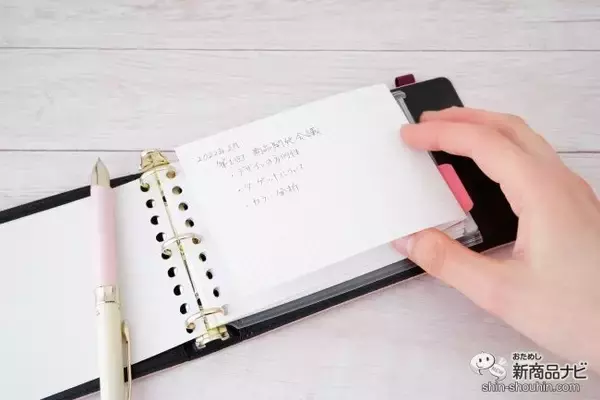 2022年2月
第1回 商品開発会議
・デザインの方向性
・ターゲットについて
・カラー分析
おためし
新商品ナビ
shin-shouhin.com